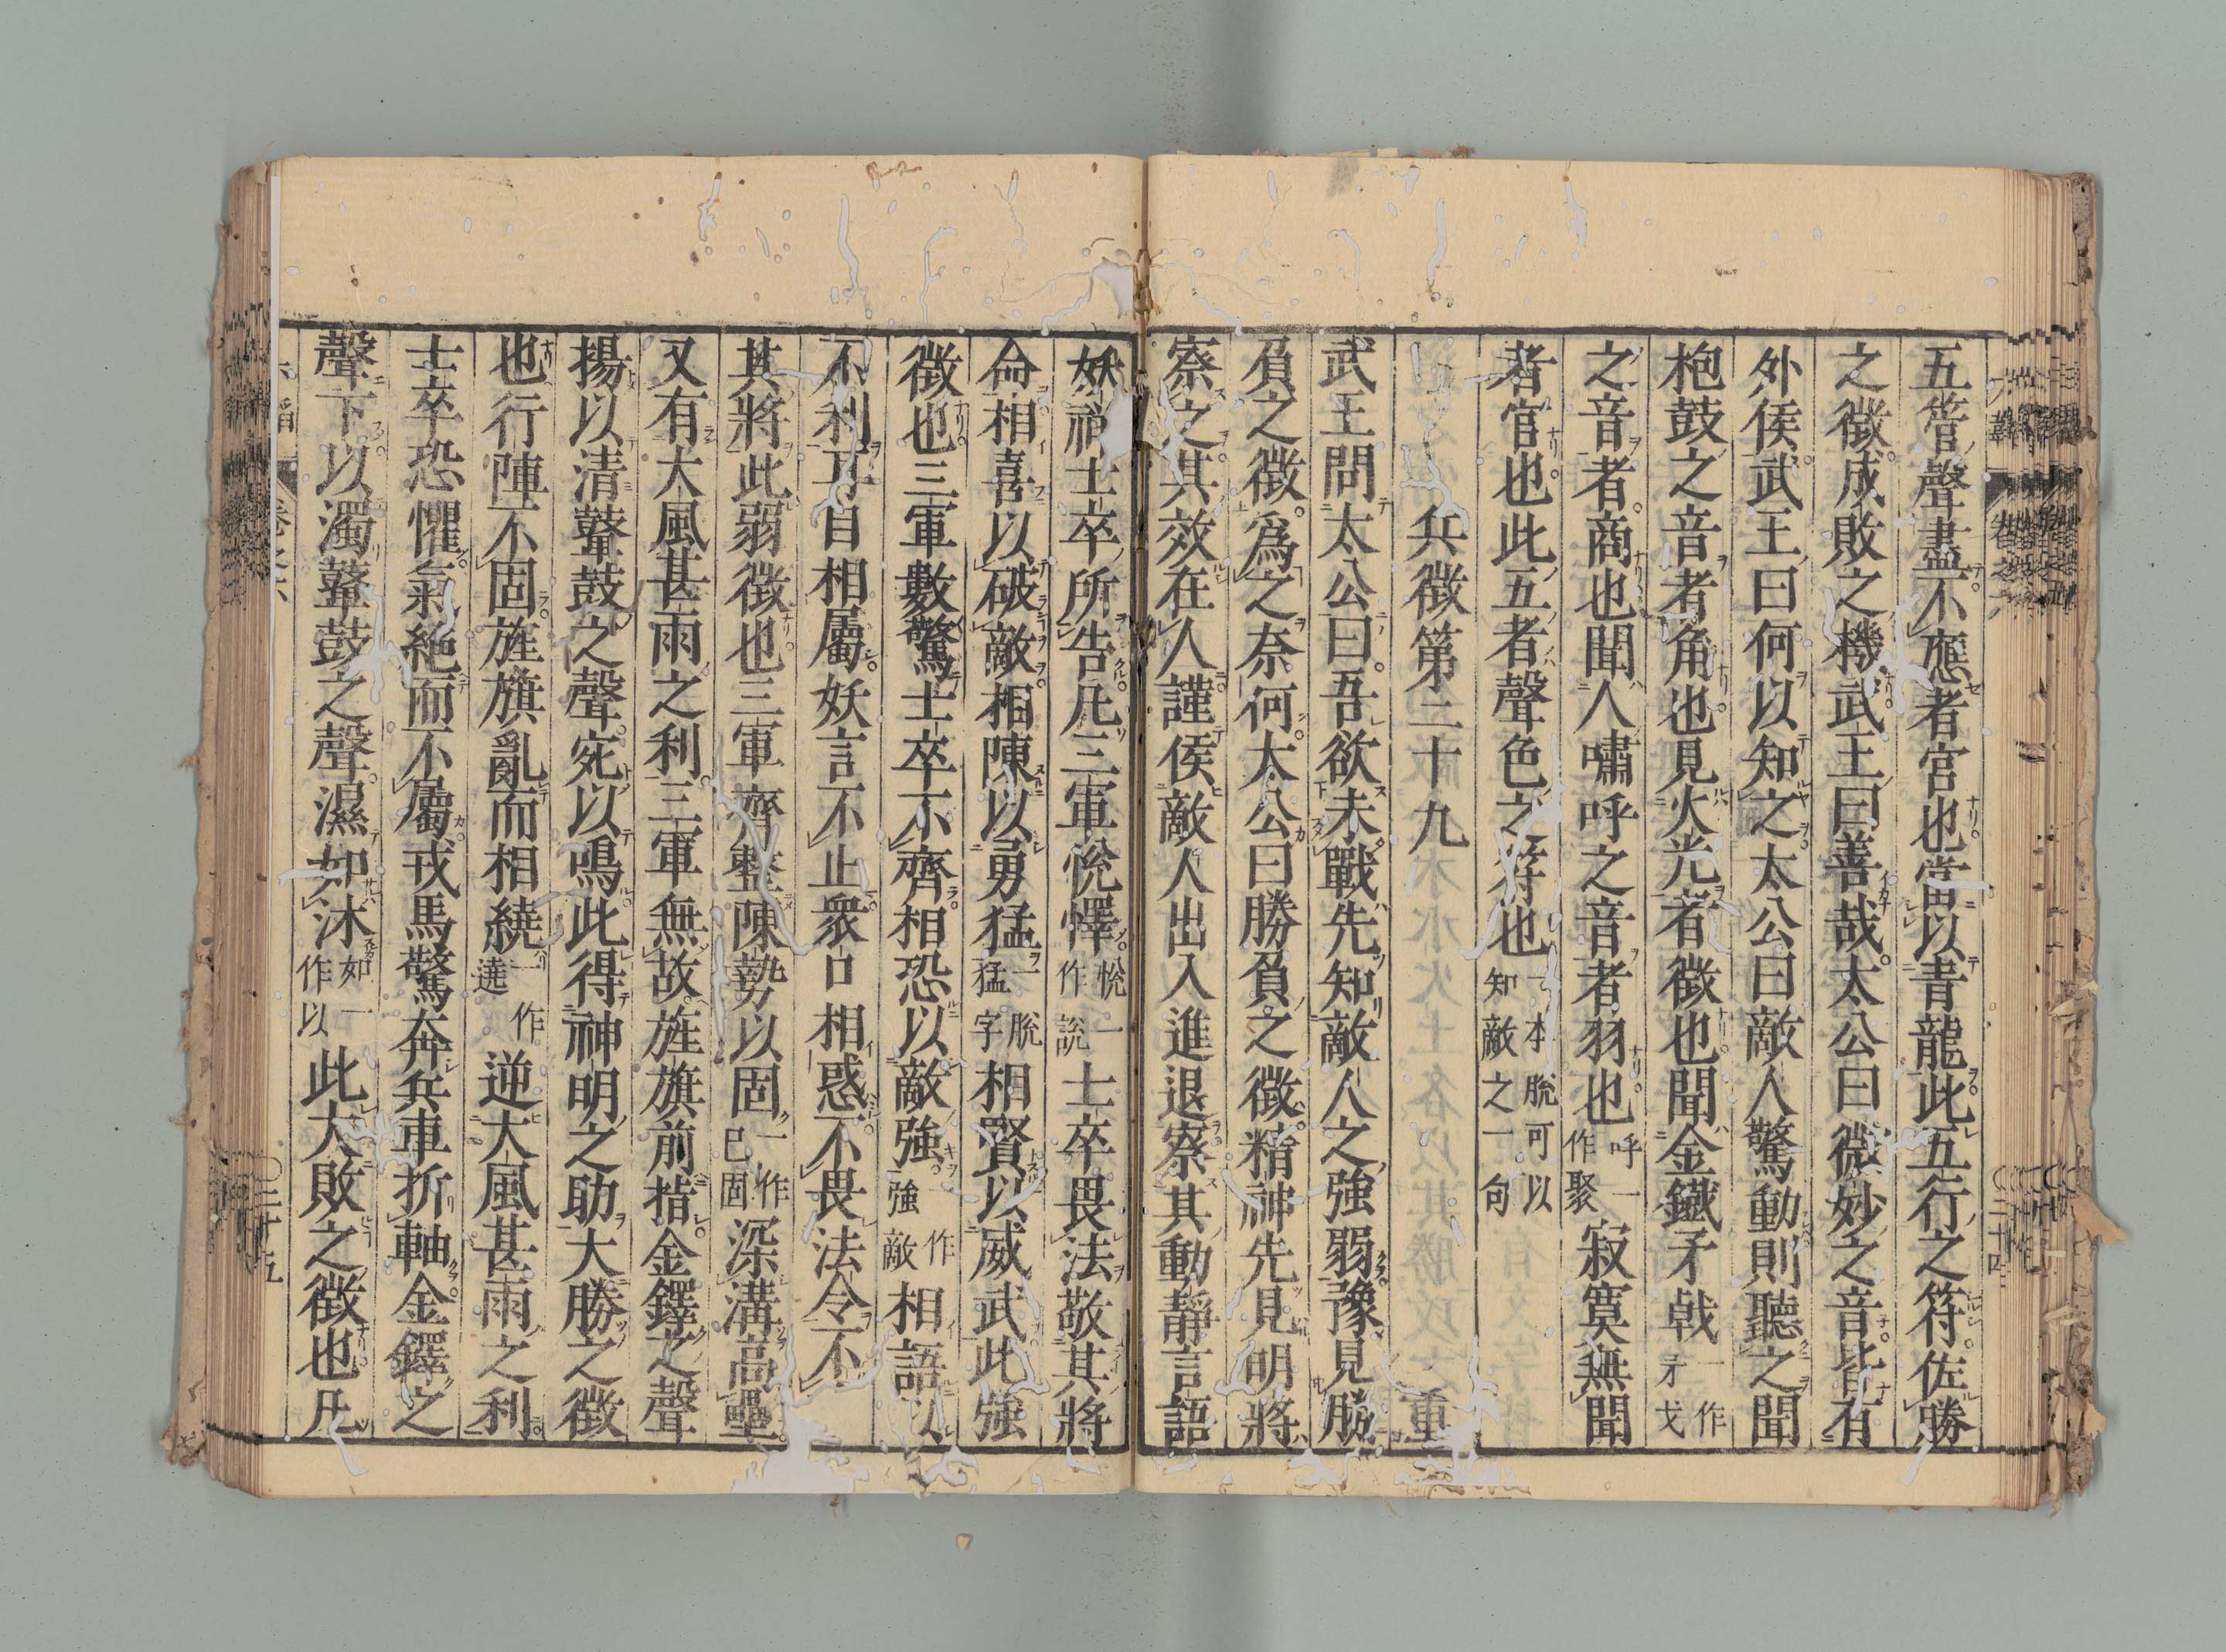 五管聲盡不應者宮也當以青龍此五行之符佐勝
之徵成敗之機武王曰善哉太公曰微妙之音皆有
外侯武王曰何以知之太公曰敵人驚動則聽之聞
枹鼓之音者角也見火光者徵也聞金鐵矛戟一作矛戈
之音者商也聞人嘯呼之音者羽也呼一作聚寂寞無聞
者宮也此五者聲色之符也一本脫可以知敵之一句
兵徵第二十九 重
武王問太公曰吾欲未戰先知敵人之強弱豫見勝
負之徵爲之奈何太公曰勝負之徵精神先見明將
察之其效在人謹侯敵人出入進退察其動靜言語
妖祥士卒所告凡三軍悅懌悅一作說士卒畏法敬其將
命相喜以破敵相陳以勇猛一脫猛字相賢以威武此強
徵也三軍數驚士卒不齊相恐以敵強一作強敵相語以
不利耳目相屬妖言不止衆口相惑不畏法令不
其將此弱徵也三軍齊整陳勢以固一作已固深溝高壘
又有大風甚雨之利三軍無故旌旗前指金鐸之聲
揚以清鼙鼓之聲宛以鳴此得神明之助大勝之徵
也行陣不固旌旗亂而相繞一作遶逆大風甚雨之利
士卒恐懼氣絶而不屬戎馬驚奔兵車折軸金鐸之
聲下以濁鼙鼓之聲濕如沐如一作以此大敗之徵也凡